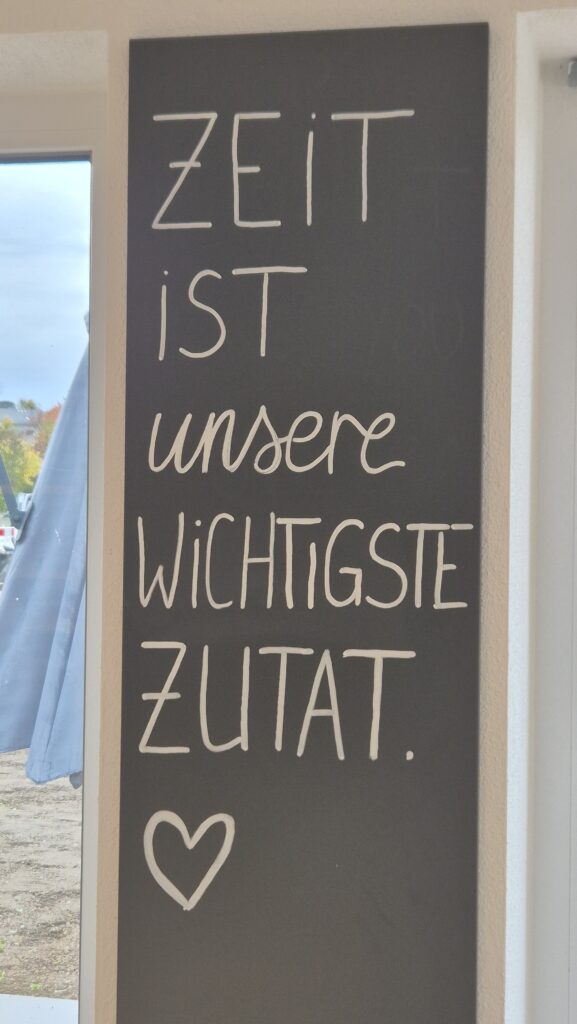 ZEiT
iST
unsere
WiCHTiGSTE
ZUTAT.